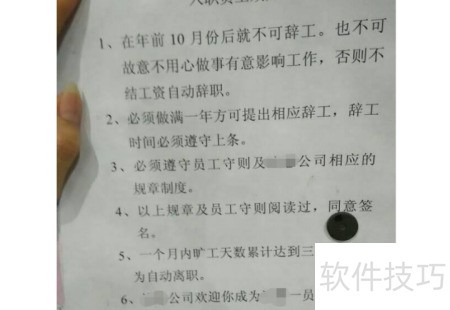 1、在年前 10 月份后就不可辞工。也不可
故意不用心做事有意影响工作，否则不
结工资自动辞职。
2、必须做满一年方可提出相应辞工，辞工
时间必须遵守上条。
3、必须遵守员工守则及 公司相应的
规章制度。
4、以上规章及员工守则阅读过，同意签
名。
5、一个月内旷工天数累计达到三
为自动离职。
6、 公司欢迎你成为 一员
软件技巧